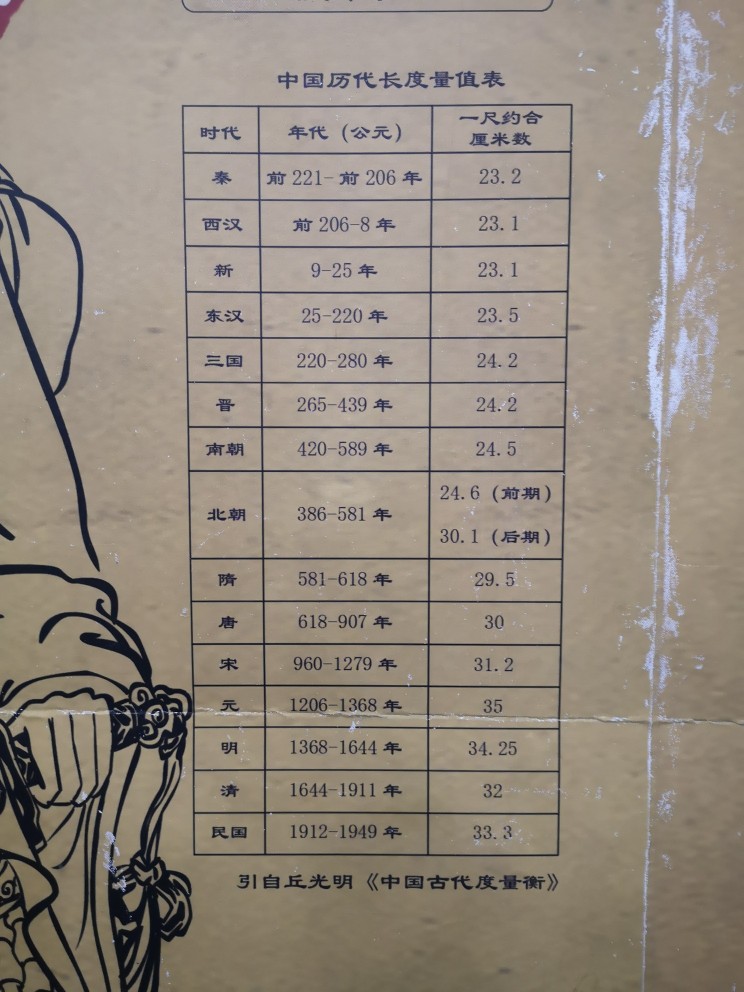 中国历代长度量值表
时代 年代（公元） 一尺约合厘米数
秦 前221-前206年 23.2
西汉 前206-8年 23.1
新 9-25年 23.1
东汉 25-220年 23.5
三国 220-280年 24.2
晋 265-439年 24.2
南朝 420-589年 24.5
北朝 386-581年 24.6（前期）
30.1（后期）
隋 581-618年 29.5
唐 618-907年 30
宋 960-1279年 31.2
元 1206-1368年 35
明 1368-1644年 34.25
清 1644-1911年 32
民国 1912-1949年 33.3
引自丘光明《中国古代度量衡》